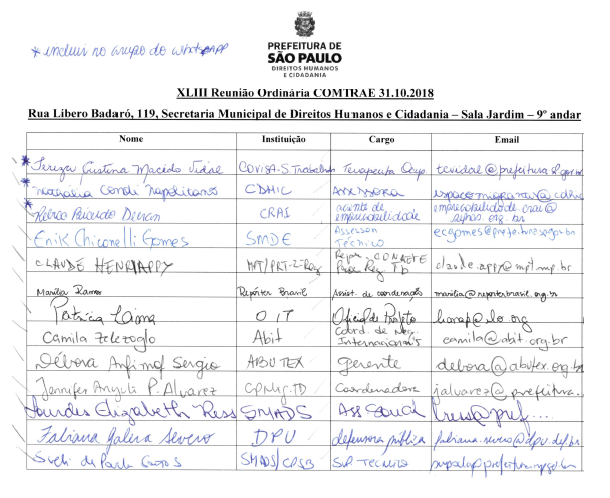 * incluir no grupo do whatsapp
PREFEITURA DE
SÃO PAULO
DIREITOS HUMANOS
E CIDADANIA
XLIII Reunião Ordinária COMTRAE 31.10.2018
Rua Libero Badaró, 119, Secretaria Municipal de Direitos Humanos e Cidadania – Sala Jardim – 9º andar
Nome Instituição Cargo Email
* Tereza Cristina Macedo Vidal COVISA-S. Trabalhador Terapeuta Ocup tcvidal@prefeitura.sp.gov.br
* Nathália Condi Napolitano CDHIC Assessora
* CRAI agente de empregabilidade
Erik Chiconelli Gomes SMDE Assessor Técnico ecgomes@prefeitura.sp.gov.br
CLAUDE HENRI APPY MPT/PRT-2-Reg claude.appy@mpt.mp.br
Marília Ramos Repórter Brasil Assist. de coordenação marilia@reporterbrasil.org.br
Patrícia Lima OIT Oficial de Projeto
Camila Zelezoglo Abit Coord. de Neg. Internacionais camila@abit.org.br
Débora Sergio ABUTEX gerente debora@abutex.org.br
Jennifer Anyuli P. Alvarez CPMigTD Coordenadora jalvarez@prefeitura...
Lourdes Elizabeth Ress SMADS Ass Social lress@pref....
Fabiana Galera Severo DPU defensora pública fabiana.severo@dpu.def.br
Sueli de Paula Santos SMADS/CPSB Sup Técnico